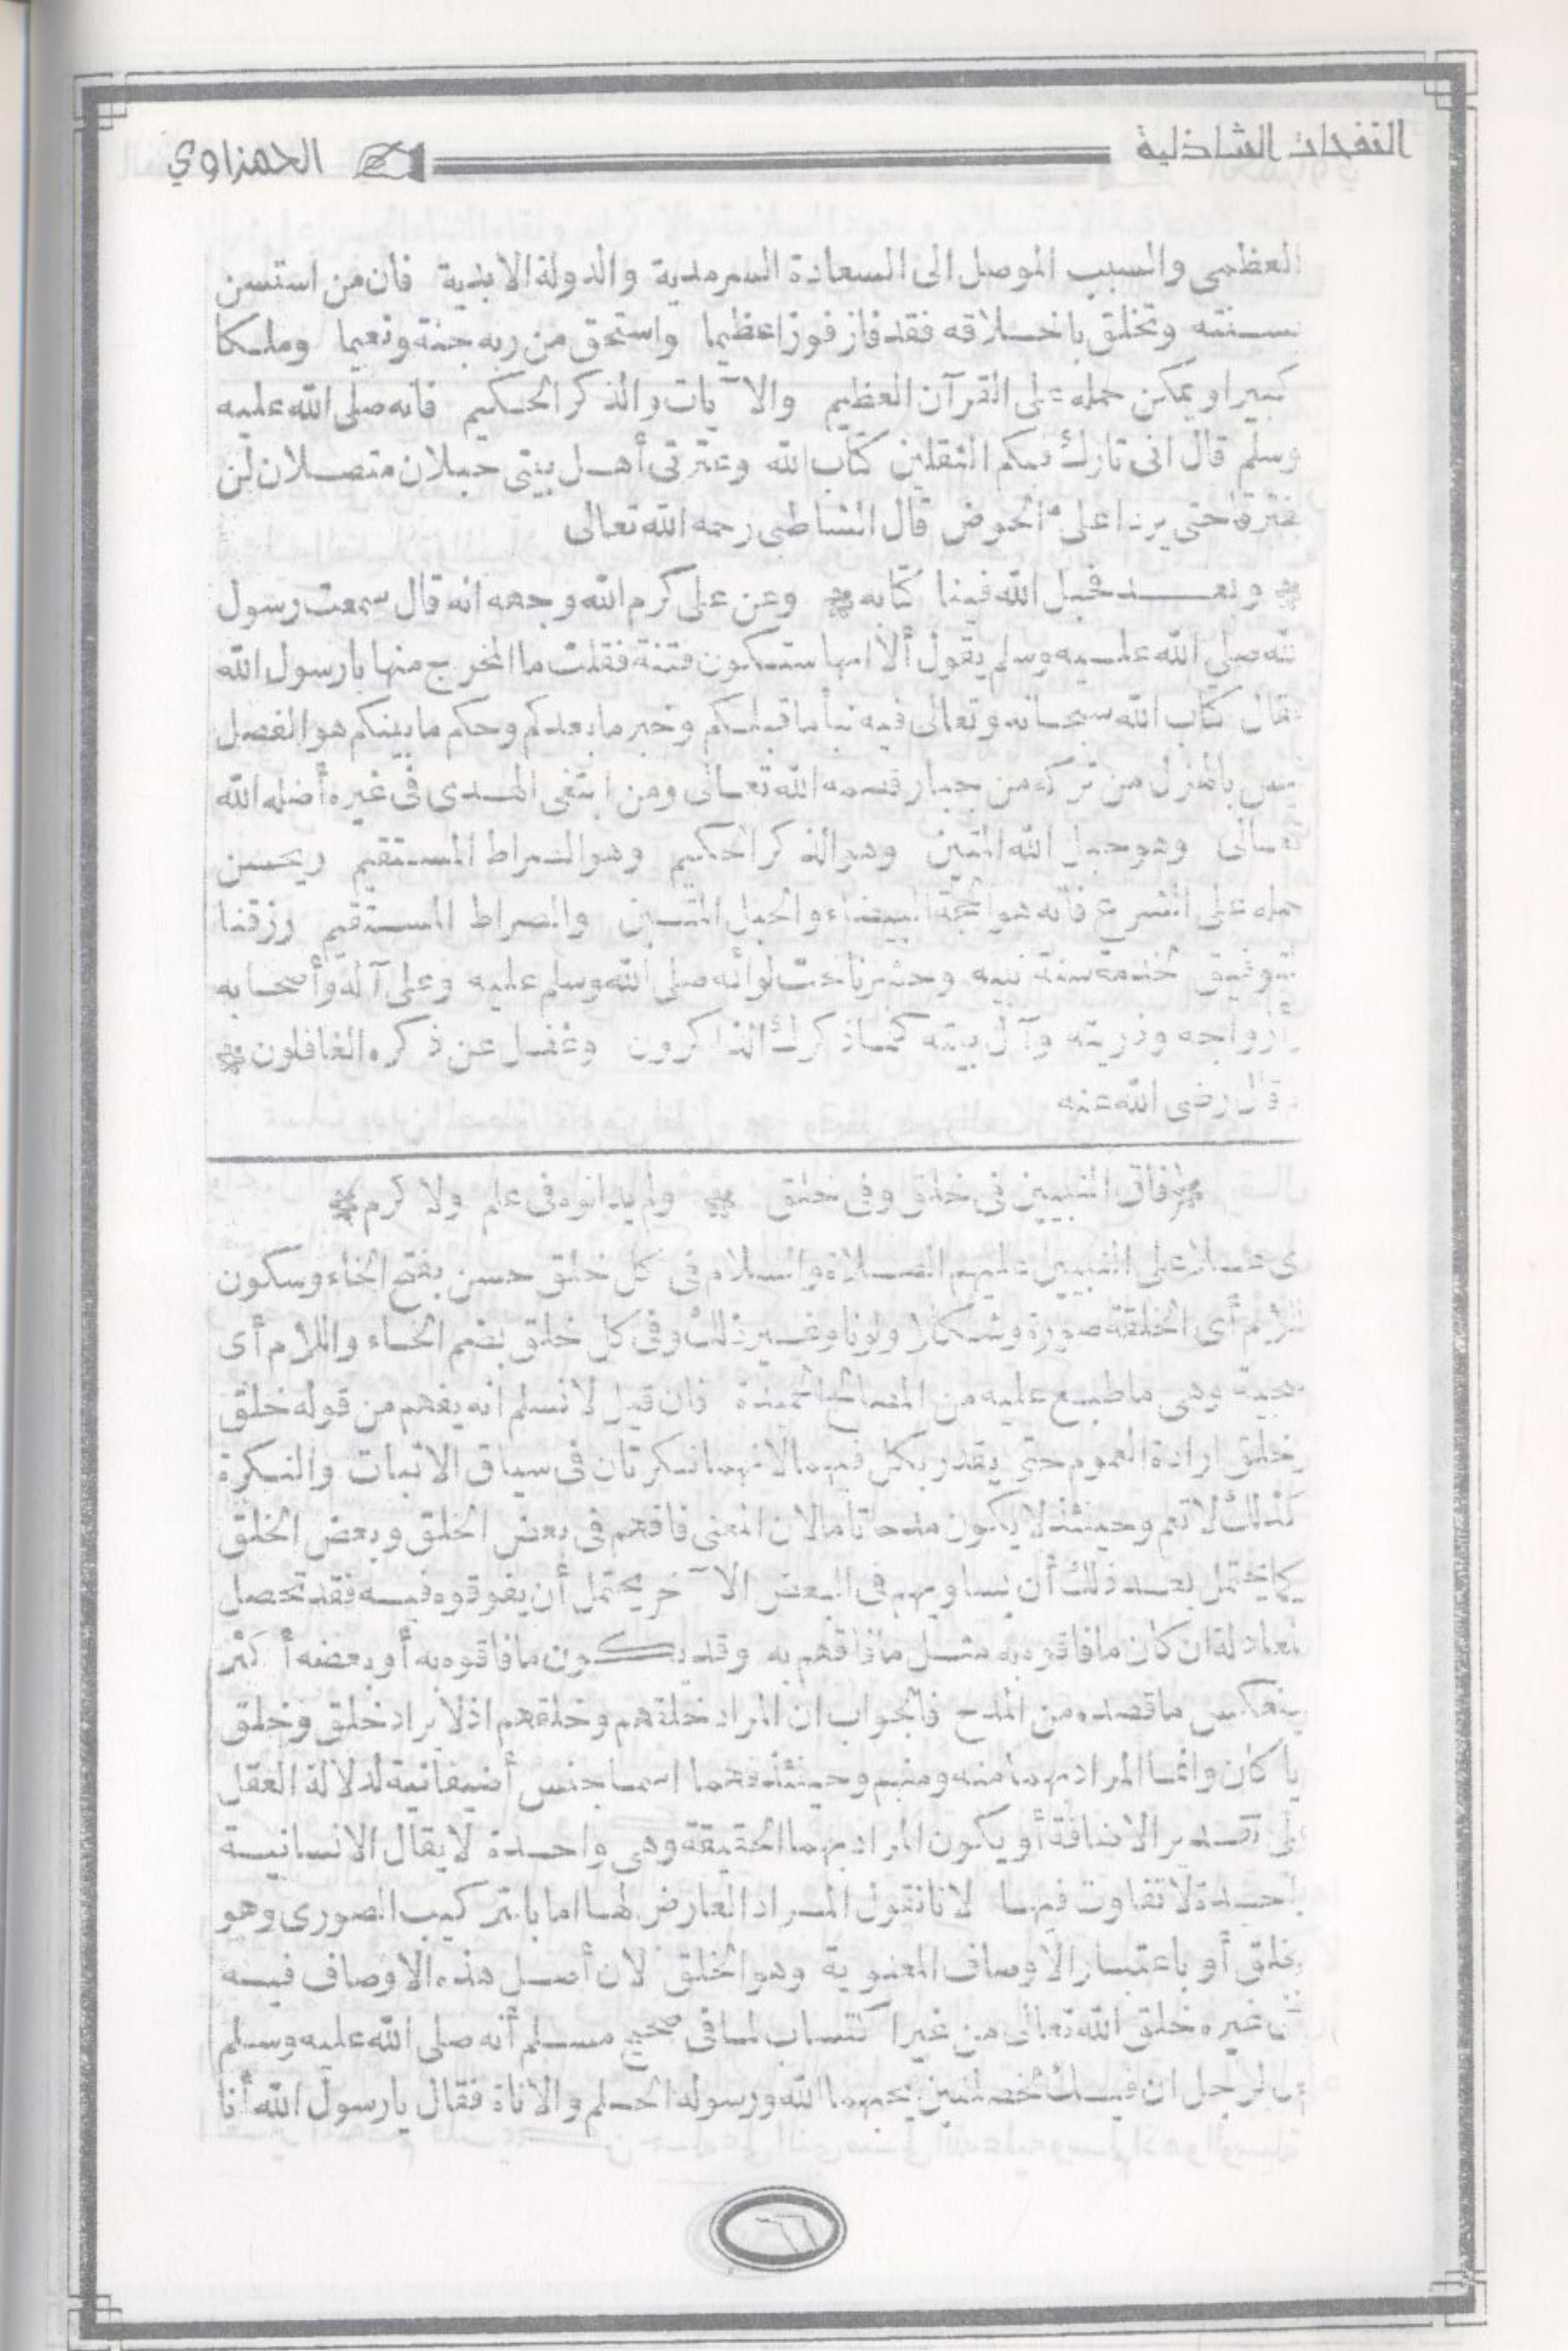 النفحات الشاذلية
الحمزاوي
العظمى والسبب الموصل الى السعادة السرمدية والدولة الابدية فان من استسن
بسنته وتخلق باخلاقه فقد فاز فوزا عظيما واستحق من ربه جنة ونعيما وملكا
كبيرا او يمكن حمله على القرآن العظيم والآيات والذكر الحكيم فانه صلى الله عليه
وسلم قال انى تارك فيكم الثقلين كتاب الله وعترتى أهل بيتى حبلان متصلان لن
يفترقا حتى يردا على الحوض قال الشاطبى رحمه الله تعالى
وبعد فحبل الله فينا كتابه وعن على كرم الله وجهه انه قال سمعت رسول
الله صلى الله عليه وسلم يقول ألا انها ستكون فتنة فقلت ما المخرج منها يارسول الله
فقال كتاب الله سبحانه وتعالى فيه نبأ ما قبلكم وخبر ما بعدكم وحكم ما بينكم هو الفصل
ليس بالهزل من تركه من جبار قصمه الله تعالى ومن ابتغى الهدى فى غيره أضله الله
تعالى وهو حبل الله المتين وهو الذكر الحكيم وهو الصراط المستقيم ويحسن
حمله على الشرع فانه هو المحجة البيضاء والحبل المتين والصراط المستقيم رزقنا
التوفيق لخدمة سنة نبيه وحشرنا تحت لوائه صلى الله وسلم عليه وعلى آله وأصحابه
وأزواجه وذريته وآل بيته كلما ذكرك الذاكرون وغفل عن ذكره الغافلون
قال رضى الله عنه
فاق النبيين فى خلق وفى خلق ولم يدانوه فى علم ولا كرم
أى علا على النبيين عليهم الصلاة والسلام فى كل خلق حسن بفتح الخاء وسكون
اللام أى الخلقة صورة وشكلا ولونا وغير ذلك وفى كل خلق بضم الخاء واللام أى
سجية وهى ما طبع عليه من الخصال الحميدة فان قيل لا نسلم انه يفهم من قوله خلق
وخلق ارادة العموم حتى يقدر بكل فيهما لانهما نكرتان فى سياق الاثبات والنكرة
كذلك لا تعم وحينئذ لا يكون مدحا تاما لان المعنى فاقهم فى بعض الخلق وبعض الخلق
كما يحتمل بعد ذلك أن يساويهم فى البعض الآخر يحتمل أن يفوقوه فيه فقد تحصل
المعادلة ان كان ما فاقوه به مثل ما فاقهم به وقد يكون ما فاقوه به أو بعضه أكثر
فينعكس ما قصده من المدح فالجواب ان المراد خلقهم وخلقهم اذ لا يراد خلق وخلق
أيا كان وانما المراد بهما منه ومنهم وحينئذ فهما اسما جنس أضيفا نية لدلالة العقل
على تقدير الاضافة أو يكون المراد بهما الحقيقة وهى واحدة لا يقال الانسانية
واحدة لا تفاوت فيها لانا نقول المراد العارض لها اما بالتركيب الصورى وهو
الخلق أو باعتبار الاوصاف المعنوية وهو الخلق لان أصل هذه الاوصاف فيه
وفى غيره خلق الله تعالى من غير اكتساب لما فى صحيح مسلم أنه صلى الله عليه وسلم
قال لرجل ان فيك لخصلتين يحبهما الله ورسوله الحلم والاناة فقال يارسول الله أنا
٦٦